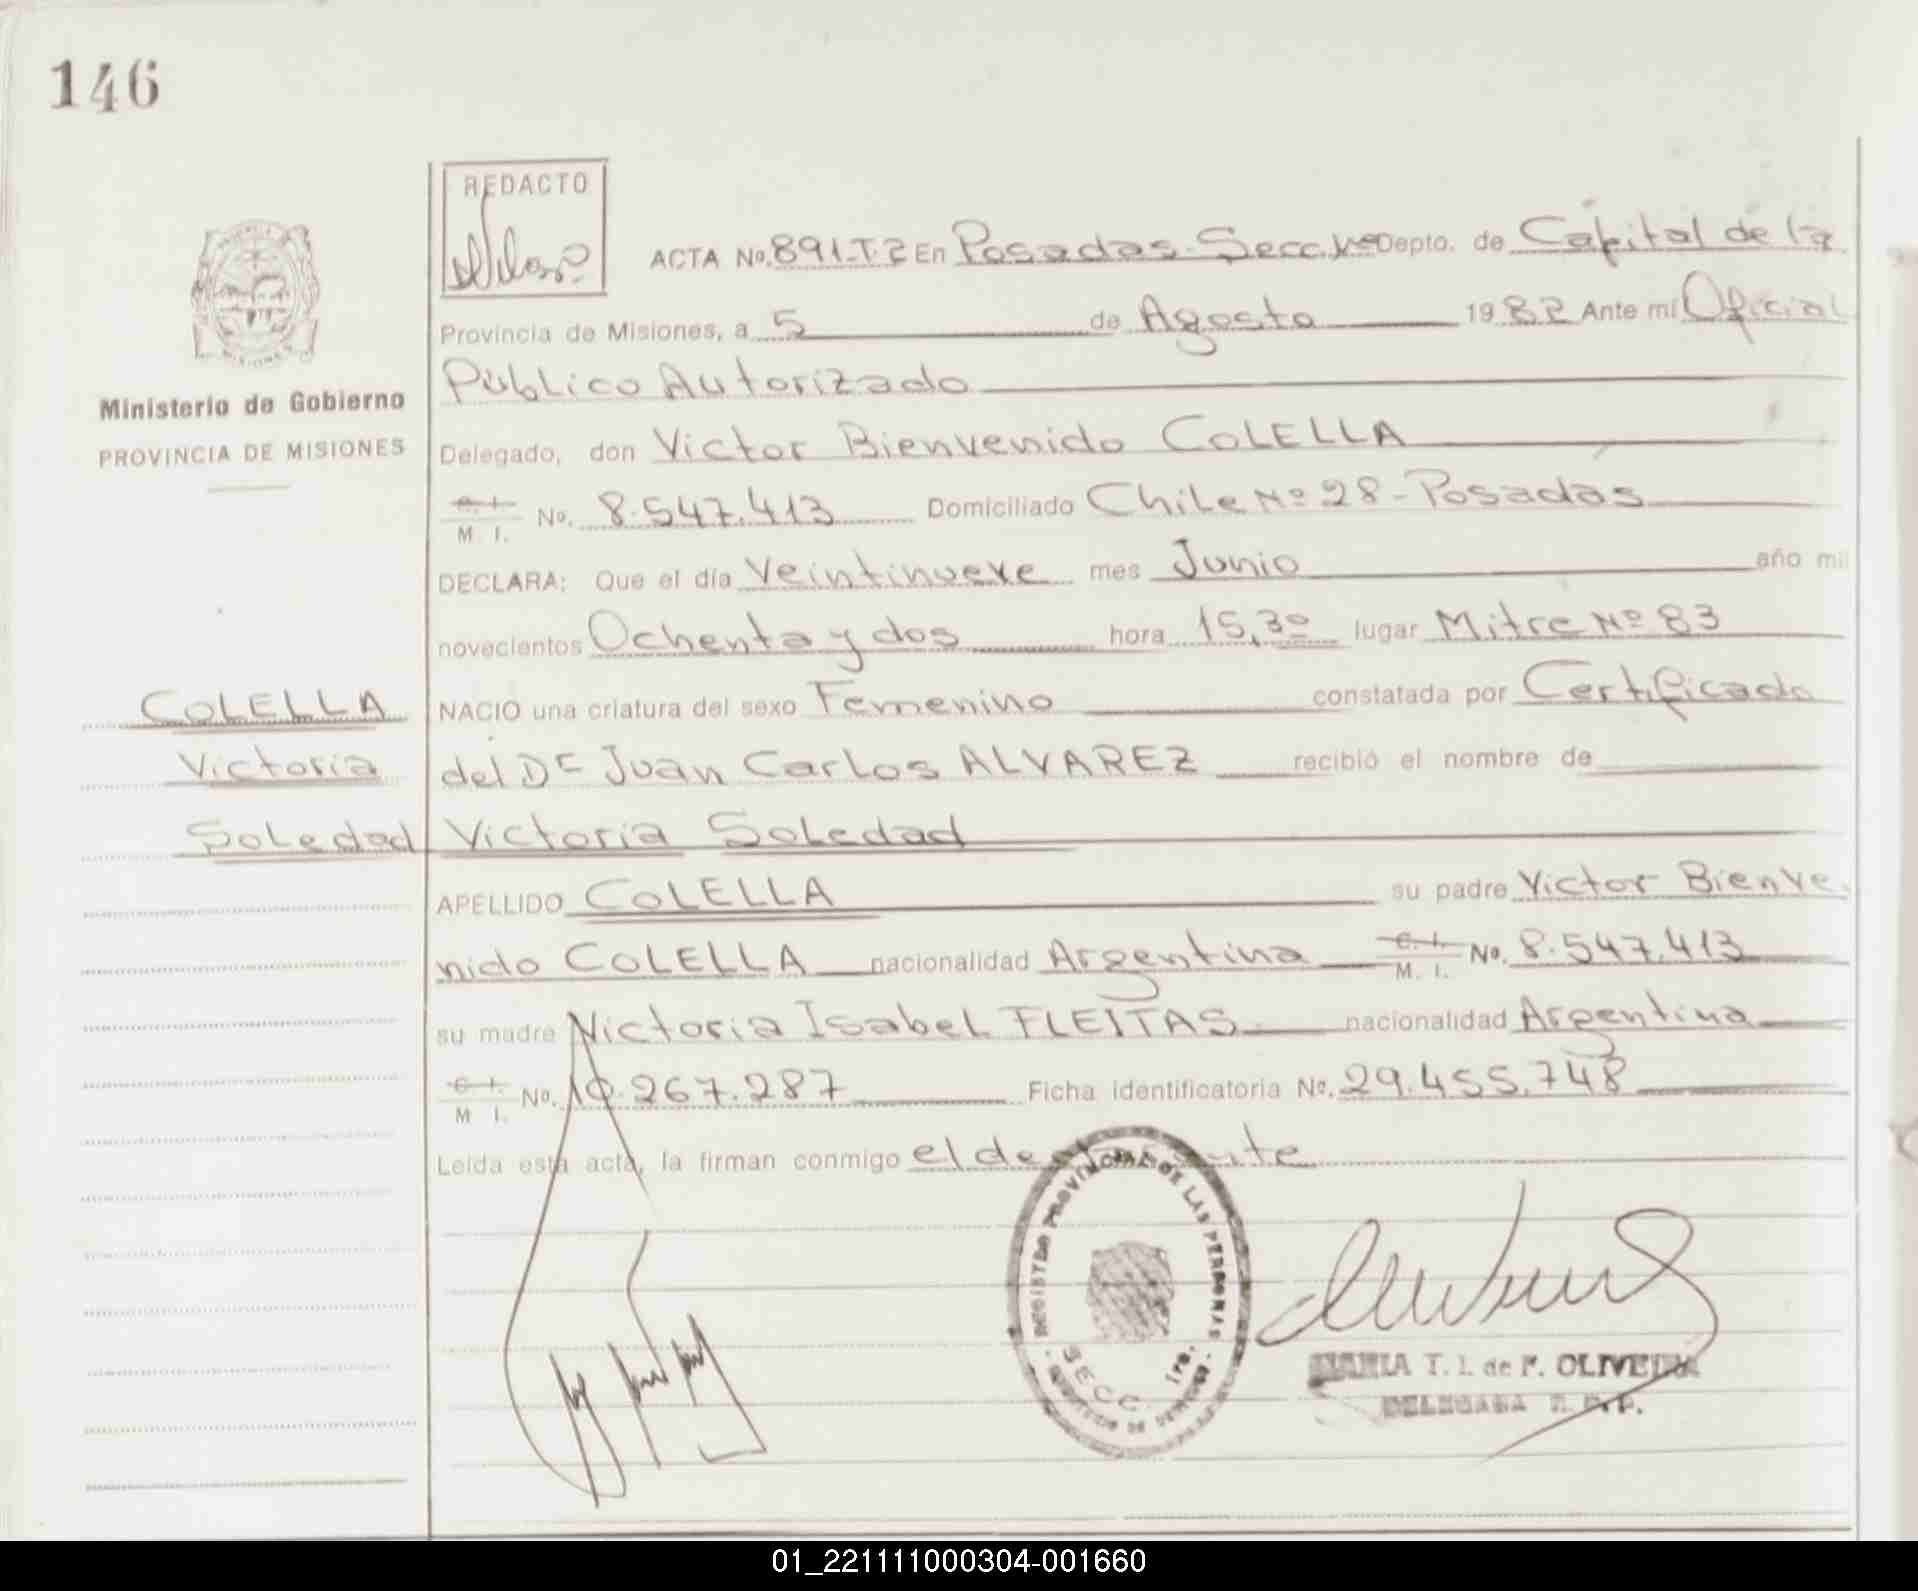 146
REDACTO
ACTA No. 891-T.2 En Posadas-Secc. 1ª Depto. de Capital de la
Provincia de Misiones, a 5 de Agosto 1982 Ante mi Oficial
Ministerio de Gobierno
Público Autorizado
PROVINCIA DE MISIONES
Delegado, don Victor Bienvenido COLELLA
C. I.
M. I. No. 8.547.413 Domiciliado Chile Nº 28 - Posadas
DECLARA: Que el día Veintinueve mes Junio año mil
novecientos Ochenta y dos hora 15,30 lugar Mitre Nº 83
COLELLA
NACIO una criatura del sexo Femenino constatada por Certificado
Victoria
del Dr Juan Carlos ALVAREZ recibió el nombre de
Soledad
Victoria Soledad
APELLIDO COLELLA su padre Victor Bienve
nido COLELLA nacionalidad Argentina C. I. M. I. No. 8.547.413
su madre Victoria Isabel FLEITAS nacionalidad Argentina
C. I.
M. I. No. 10.267.287 Ficha identificatoria No. 29.455.748
Leída esta acta, la firman conmigo el declarante
REGISTRO PROVINCIAL DE LAS PERSONAS
SECC. 1ra.
MARIA T. I. de F. OLIVEIRA
DELEGADA R. P. P.
01_221111000304-001660